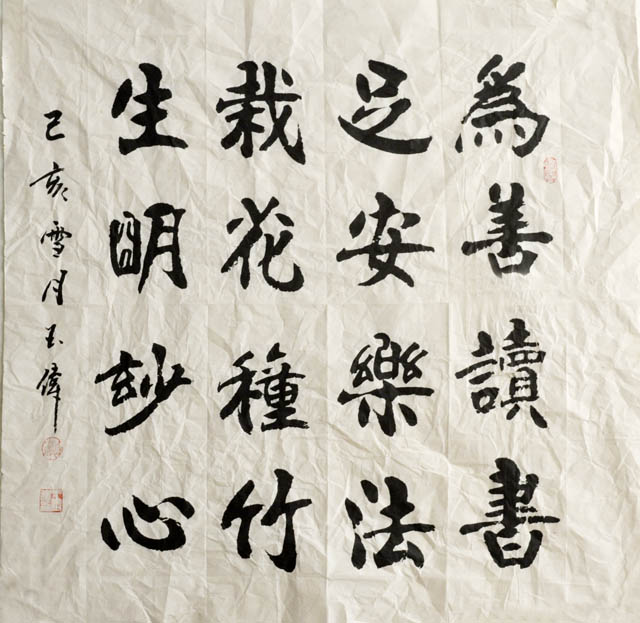 為善讀書
足安樂法
栽花種竹
生明玅心
己亥雪月玉偉